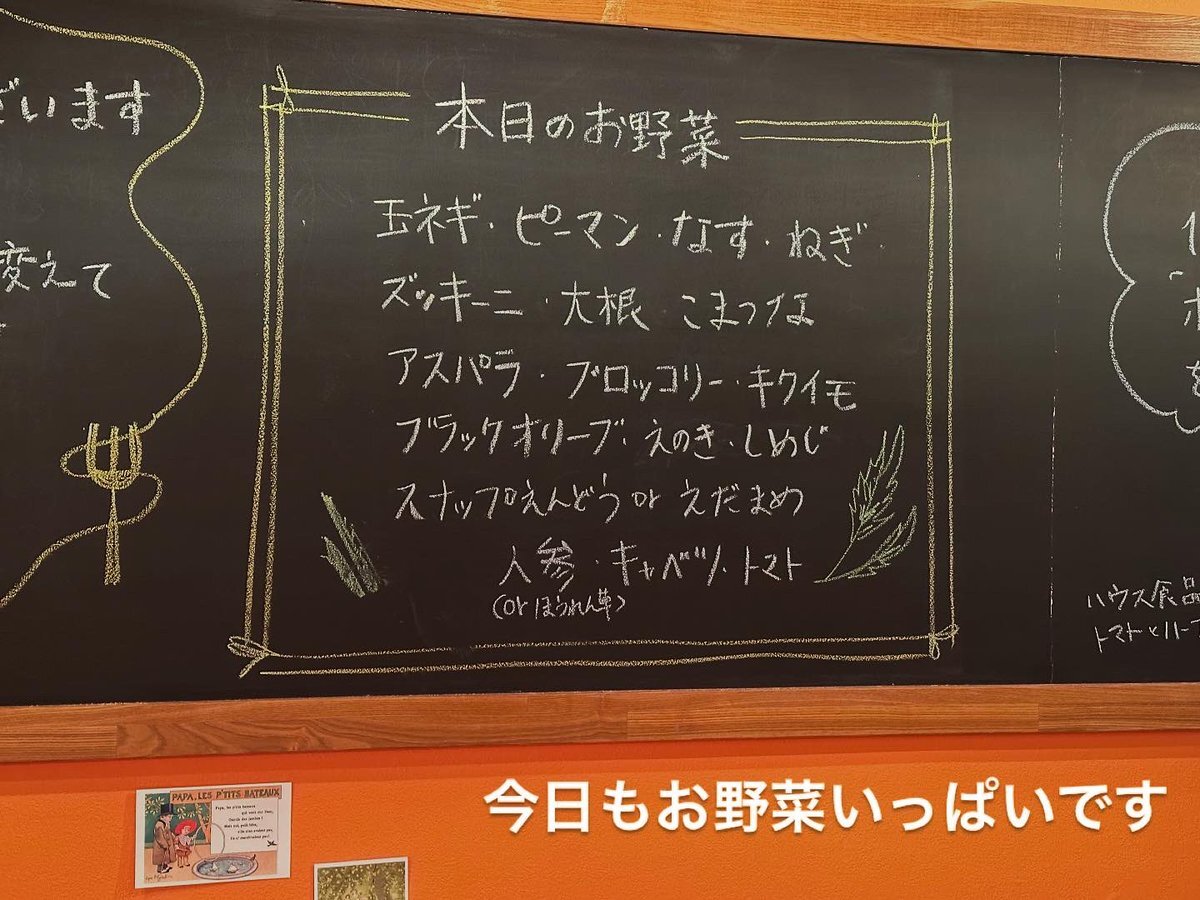 ざいます
変えて
本日のお野菜
玉ネギ・ピーマン・なす・ねぎ
ズッキーニ・大根 こまつな
アスパラ・ブロッコリー・キクイモ
ブラックオリーブ・えのき・しめじ
スナップえんどう or えだまめ
人参・キャベツ・トマト
(or ほうれん草)
ハウス食品
トマトとハーブ
PAPA, LES P'TITS BATEAUX
今日もお野菜いっぱいです